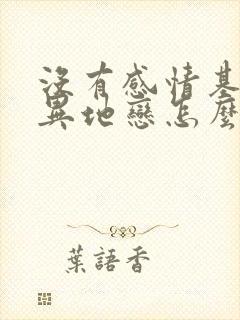 沒有感情基
異地戀怎麼
葉語香